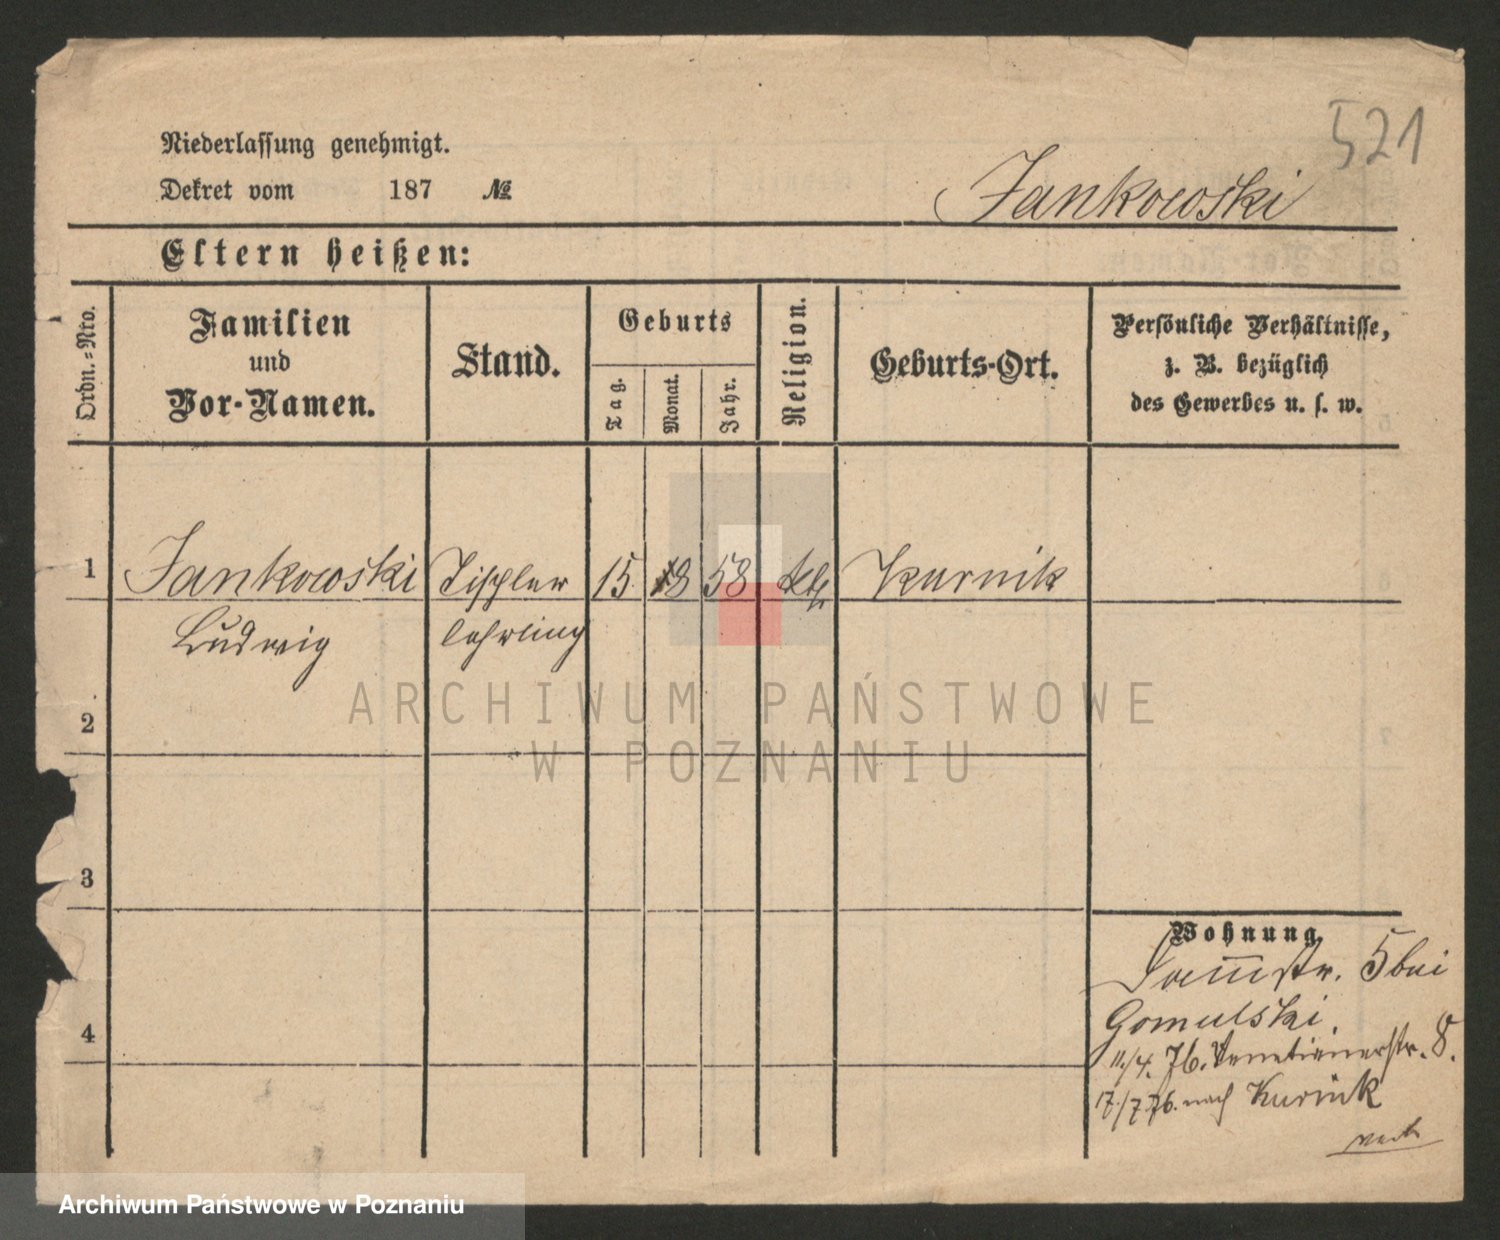 521
Niederlassung genehmigt.
Dekret vom 187 №
Jankowski
Eltern heißen:
Ordn.=Nro.
Familien
und
Vor-Namen.
Stand.
Geburts
Tag.
Monat.
Jahr.
Religion.
Geburts-Ort.
Persönliche Verhältnisse,
z. B. bezüglich
des Gewerbes u. s. w.
1 Jankowski Tischler 15 8 58 kth Kurnik
Ludwig lehrling
2
3
4
Wohnung
5 bei
Gomulski.
11./4. 76. Venetianerstr. 8.
17./7 76. nach Kurnik
ARCHIWUM PAŃSTWOWE
W POZNANIU
Archiwum Państwowe w Poznaniu